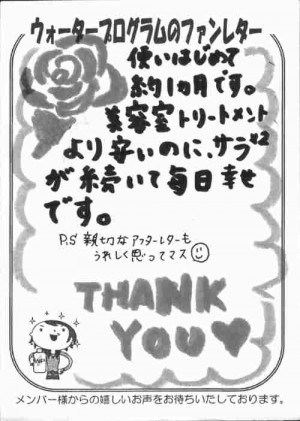 ウォータープログラムのファンレター
使いはじめて
約1カ月です。
美容室トリートメント
より安いのに、サラ×2
が続いて毎日幸せ
です。
P.S 親切なアフターレターも
うれしく思ってマス
THANK
YOU
メンバー様からの嬉しいお声をお待ちいたしております。